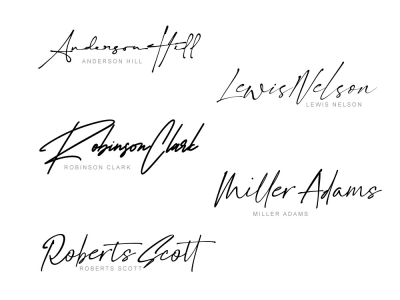 Anderson Hill
ANDERSON HILL
Lewis Nelson
LEWIS NELSON
Robinson Clark
ROBINSON CLARK
Miller Adams
MILLER ADAMS
Roberts Scott
ROBERTS SCOTT